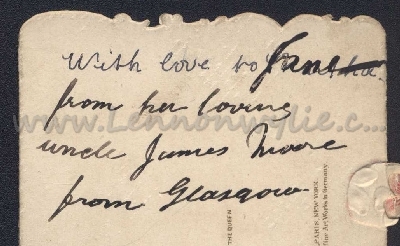 With love to Jane
from her loving
uncle James Moore
from Glasgow
www.Lennonwylie.c...
THE QUEEN
PARIS, NEW YORK.
Fine Art Works in Germany